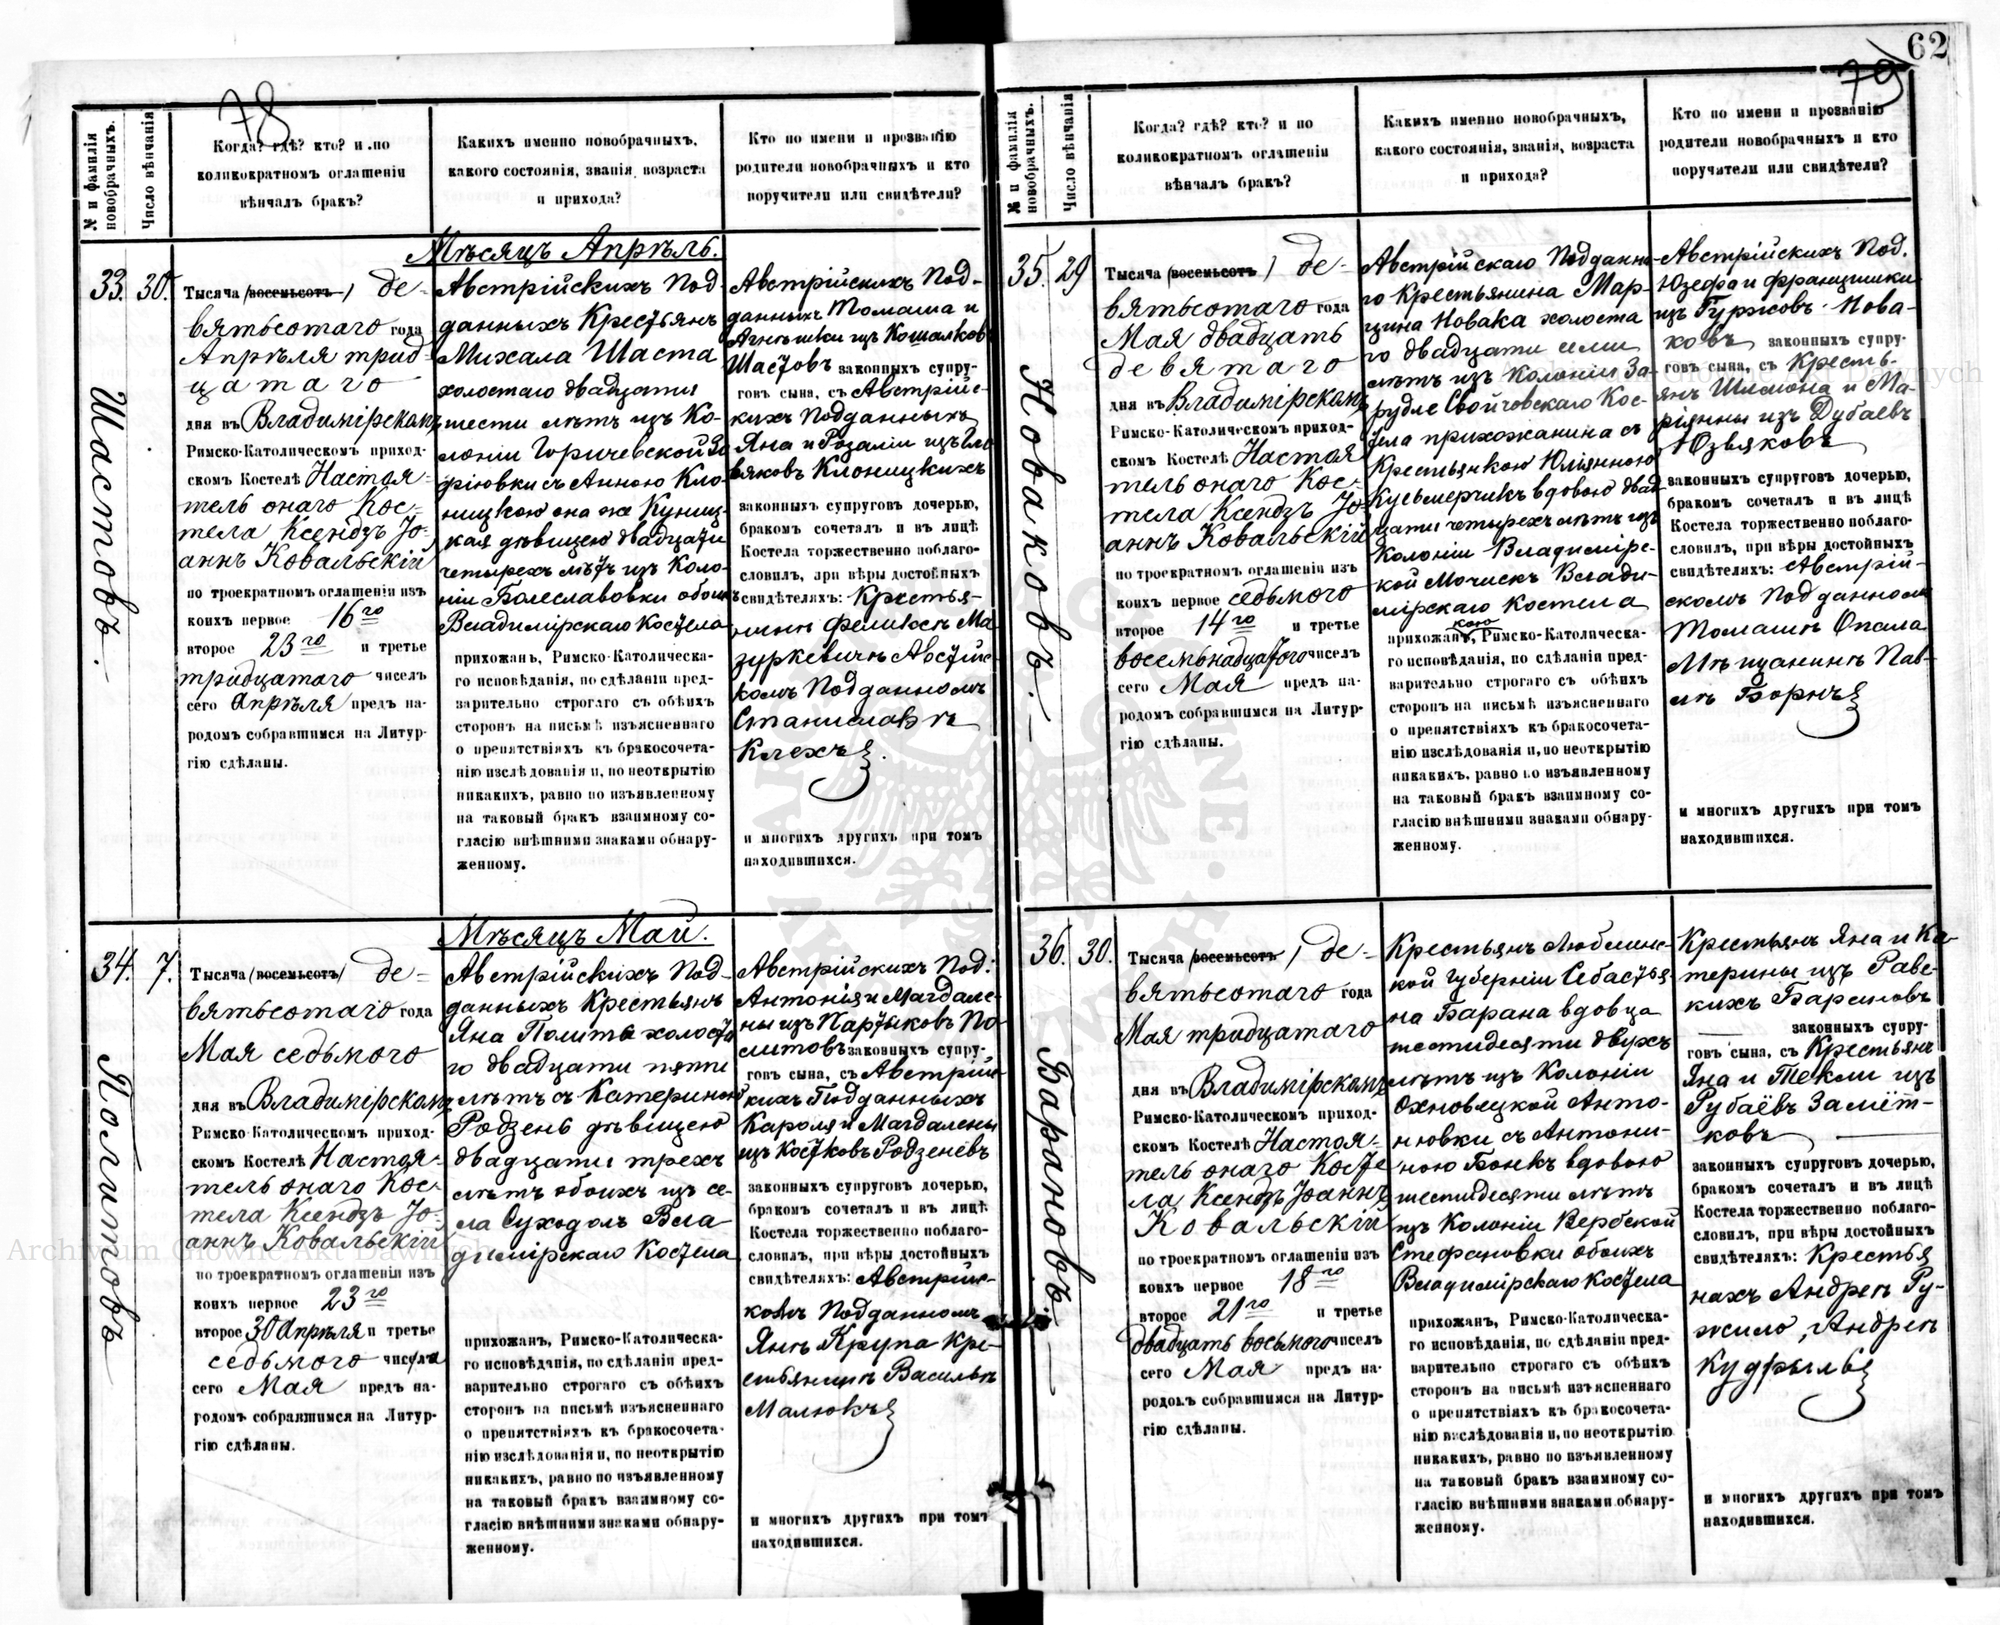 78
№ и фамилія новобрачныхъ.
Число вѣнчанія
Когда? гдѣ? кто? и по
коликократномъ оглашеніи
вѣнчалъ бракъ?
Какихъ именно новобрачныхъ,
какого состоянія, званія, возраста
и прихода?
Кто по имени и прозванію
родители новобрачныхъ и кто
поручители или свидѣтели?
Мѣсяцъ Апрѣль.
33.
30.
Шастовъ.
Тысяча (восемьсотъ) де-
вятьсотаго года
Апрѣля трид-
цатаго
дня въ Владимірскомъ
Римско-Католическомъ приход-
скомъ Костелѣ Настоя-
тель онаго Кос-
тела Ксендзъ Іо-
аннъ Ковальскій
по троекратномъ оглашеніи изъ
коихъ первое 16го
второе 23го и третье
тридцатаго чиселъ
сего Апрѣля предъ на-
родомъ собравшимся на Литур-
гію сдѣланы.
Австрійскихъ Под-
данныхъ Крестьянъ
Михала Шаста
холостаго двадцати
шести лѣтъ изъ Ко-
лоніи Горичевской Зо-
фіювки съ Анною Кло-
ницкою она же Куниц-
кая дѣвицею двадцати
четырехъ лѣтъ изъ Коло-
ніи Болеславовки обоихъ
Владимірскаго Костела
прихожанъ, Римско-Католическа-
го исповѣданія, по сдѣланіи пред-
варительно строгаго съ обѣихъ
сторонъ на письмѣ изъясненнаго
о препятствіяхъ къ бракосочета-
нію изслѣдованія и, по неоткрытію
никакихъ, равно по изъявленному
на таковый бракъ взаимному со-
гласію внѣшними знаками обнару-
женному.
Австрійскихъ Под-
данныхъ Томаша и
Агнѣшки изъ Кошалковъ
Шастовъ законныхъ супру-
говъ сына, съ Австрійс-
кихъ Подданныхъ
Яна и Розаліи изъ
Клоницкихъ
законныхъ супруговъ дочерью,
бракомъ сочеталъ и въ лицѣ
Костела торжественно поблаго-
словилъ, при вѣры достойныхъ
свидѣтеляхъ: Крестья-
нинѣ Феликсѣ Ма-
зуркевичѣ Австрійс-
комъ Подданномъ
Станиславѣ
Клехъ.
и многихъ другихъ при томъ
находившихся.
Мѣсяцъ Май.
34.
7.
Политовъ
Тысяча (восемьсотъ) де-
вятьсотаго года
Мая седьмого
дня въ Владимірскомъ
Римско-Католическомъ приход-
скомъ Костелѣ Настоя-
тель онаго Кос-
тела Ксендзъ Іо-
аннъ Ковальскій
по троекратномъ оглашеніи изъ
коихъ первое 23го
второе 30 Апрѣля и третье
седьмого числа
сего Мая предъ на-
родомъ собравшимся на Литур-
гію сдѣланы.
Австрійскихъ Под-
данныхъ Крестьянъ
Яна Полита холоста-
го двадцати пяти
лѣтъ съ Катериной
Родзень дѣвицею
двадцати трехъ
лѣтъ обоихъ изъ се-
ла Суходолъ Вла-
димірскаго Костела
прихожанъ, Римско-Католическа-
го исповѣданія, по сдѣланіи пред-
варительно строгаго съ обѣихъ
сторонъ на письмѣ изъясненнаго
о препятствіяхъ къ бракосочета-
нію изслѣдованія и, по неоткрытію
никакихъ, равно по изъявленному
на таковый бракъ взаимному со-
гласію внѣшними знаками обнару-
женному.
Австрійскихъ Под.
Антонія и Магдале-
ны изъ Партыковъ По-
литовъ законныхъ супру-
говъ сына, съ Австрійс-
кихъ Подданныхъ
Кароля и Магдалены
изъ Костковъ Родзенёвъ
законныхъ супруговъ дочерью,
бракомъ сочеталъ и въ лицѣ
Костела торжественно поблаго-
словилъ, при вѣры достойныхъ
свидѣтеляхъ: Австрійс-
комъ Подданномъ
Янѣ Крупа Кре-
стьянинѣ Васильѣ
Малюкъ
и многихъ другихъ при томъ
находившихся.
62
79
№ и фамилія новобрачныхъ.
Число вѣнчанія
Когда? гдѣ? кто? и по
коликократномъ оглашеніи
вѣнчалъ бракъ?
Какихъ именно новобрачныхъ,
какого состоянія, званія, возраста
и прихода?
Кто по имени и прозванію
родители новобрачныхъ и кто
поручители или свидѣтели?
35.
29
Новаковъ.
Тысяча (восемьсотъ) де-
вятьсотаго года
Мая двадцать
девятаго
дня въ Владимірскомъ
Римско-Католическомъ приход-
скомъ Костелѣ Настоя
тель онаго Кос-
тела Ксендзъ Іо-
аннъ Ковальскій
по троекратномъ оглашеніи изъ
коихъ первое седьмого
второе 14го и третье
восемьнадцатого чиселъ
сего Мая предъ на-
родомъ собравшимся на Литур-
гію сдѣланы.
Австрійскаго Поддан-
го Крестьянина Мар-
цина Новака холоста
го двадцати семи
лѣтъ изъ Колоніи За-
рудле Свойчовскаго Кос-
тела прихожанина съ
Крестьянкою Юліянною
Кусьмерчикъ вдовою двад-
цати четырехъ лѣтъ изъ
Колоніи Владимірс-
кой Мочискъ Влади-
мірскаго Костела
прихожанкою, Римско-Католическа-
го исповѣданія, по сдѣланіи пред-
варительно строгаго съ обѣихъ
сторонъ на письмѣ изъясненнаго
о препятствіяхъ къ бракосочета-
нію изслѣдованія и, по неоткрытію
никакихъ, равно по изъявленному
на таковый бракъ взаимному со-
гласію внѣшними знаками обнару-
женному.
Австрійскихъ Под.
Юзефа и Францишки
изъ Гуржовъ Нова-
ковъ законныхъ супру-
говъ сына, съ Кресть-
янъ Шимона и Ма-
ріянны изъ Дубаевъ
Юзвяковъ
законныхъ супруговъ дочерью,
бракомъ сочеталъ и въ лицѣ
Костела торжественно поблаго-
словилъ, при вѣры достойныхъ
свидѣтеляхъ: Австрій-
скомъ Подданномъ
Томашѣ Опала
Мѣщанинѣ Пав-
лѣ Борнъ
и многихъ другихъ при томъ
находившихся.
36.
30.
Барановъ.
Тысяча (восемьсотъ) де-
вятьсотаго года
Мая тридцатаго
дня въ Владимірскомъ
Римско-Католическомъ приход-
скомъ Костелѣ Настоя-
тель онаго Косте
ла Ксендзъ Іоаннъ
Ковальскій
по троекратномъ оглашеніи изъ
коихъ первое 18го
второе 21го и третье
двадцать восьмого чиселъ
сего Мая предъ на-
родомъ собравшимся на Литур-
гію сдѣланы.
Крестьянъ Люблинс-
кой Губерніи Себастья-
на Барана вдовца
шестидесяти двухъ
лѣтъ изъ Колоніи
Охновецкой Анто-
нювки съ Антони-
ною Бонкъ вдовою
шестидесяти лѣтъ
изъ Колоніи Вербской
Стефановки обоихъ
Владимірскаго Костела
прихожанъ, Римско-Католическа-
го исповѣданія, по сдѣланіи пред-
варительно строгаго съ обѣихъ
сторонъ на письмѣ изъясненнаго
о препятствіяхъ къ бракосочета-
нію изслѣдованія и, по неоткрытію
никакихъ, равно по изъявленному
на таковый бракъ взаимному со-
гласію внѣшними знаками обнару-
женному.
Крестьянъ Яна и Ка-
терины изъ Раве-
кихъ Барановъ
законныхъ супру-
говъ сына, съ Крестьянъ
Яна и Текли изъ
Рубаёвъ Замёт-
ковъ
законныхъ супруговъ дочерью,
бракомъ сочеталъ и въ лицѣ
Костела торжественно поблаго-
словилъ, при вѣры достойныхъ
свидѣтеляхъ: Крестья
нахъ Андреѣ Ру-
жило, Андреѣ
Кудрыль
и многихъ другихъ при томъ
находившихся.